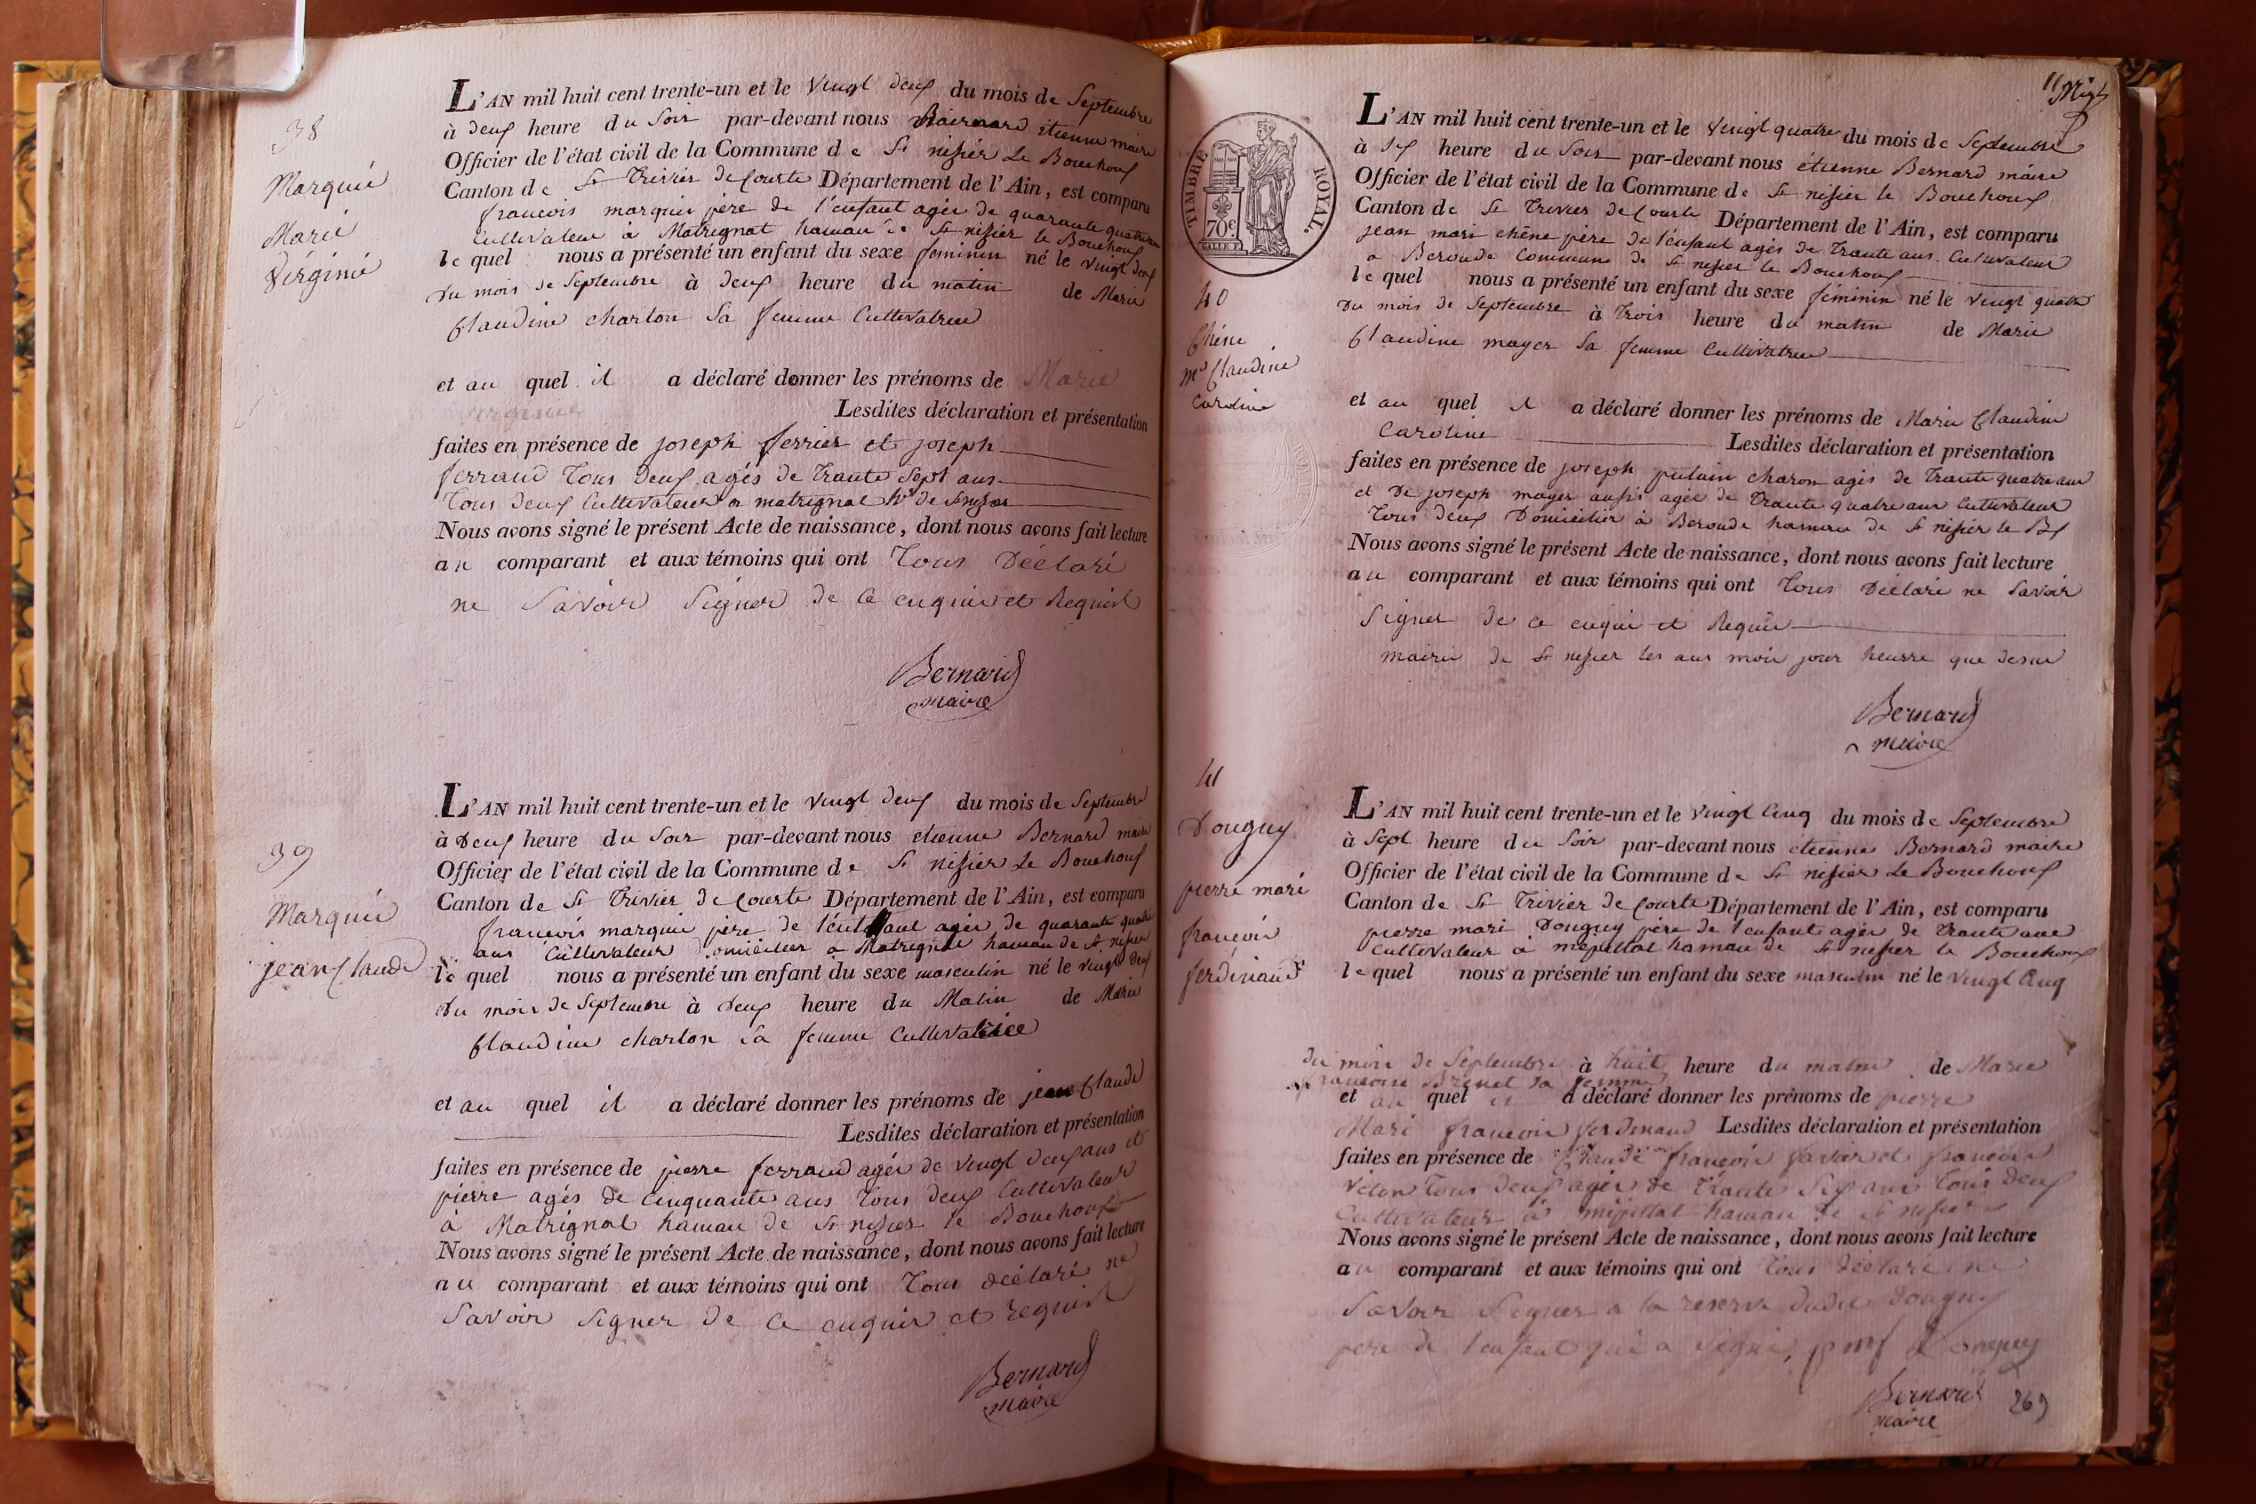 38
Marquié
Marie
Virginie
L'AN mil huit cent trente-un et le vingt deux du mois de Septembre
à deux heure du Soir par-devant nous Bairnard étienne maire
Officier de l'état civil de la Commune de St nisiér Le Bouchoux
Canton de St Trivier de Courte Département de l'Ain, est comparu
francois marquié père de l'enfant agée de quarante quatre
Cultivateur a Matrignat hamau de St nisiér le Bouchoux
le quel nous a présenté un enfant du sexe feminin né le vingt deux
du mois de Septembre à deux heure du matin de Marie
Claudine charton Sa femme Cultivatrice
et au quel il a déclaré donner les prénoms de Marie
virginie Lesdites déclaration et présentation
faites en présence de joseph ferrier et joseph
ferrand Tous deux agés de Trante Sept ans
Tous deux Cultivateur a matrignat hau de St nizier
Nous avons signé le présent Acte de naissance, dont nous avons fait lecture
au comparant et aux témoins qui ont Tous Déclaré
ne Savoir Signer de ce enquit et Requit
Bernard
maire
39
Marquié
jean Claude
L'AN mil huit cent trente-un et le vingt deux du mois de Septembre
à Deux heure du Soir par-devant nous etienne Bernard maire
Officier de l'état civil de la Commune de St nisiér Le Bouchoux
Canton de St Trivier de Courte Département de l'Ain, est comparu
francois marquié père de l'enfant agée de quarante quatre
ans Cultivateur domicilier a Matrignat hamau de St nisier
le quel nous a présenté un enfant du sexe masculin né le vingt deux
du mois de Septembre à Deux heure du Matin de Marie
Claudine charton Sa femme Cultivatrice
et au quel il a déclaré donner les prénoms de jean Claude
Lesdites déclaration et présentation
faites en présence de pierre ferraud agée de vingt deux ans et
pierre agés de Cinquante ans Tous deux Cultivateur
à Matrignat hamau de St nisier le Bouchoux
Nous avons signé le présent Acte de naissance, dont nous avons fait lecture
au comparant et aux témoins qui ont Tous décélaré ne
Savoir Signer de ce enquit et requit
Bernard
maire
TIMBRE ROYAL.
70c
40
Chêne
Me Claudine
Caroline
L'AN mil huit cent trente-un et le vingt quatre du mois de Septembre
à Six heure du Soir par-devant nous étienne Bernard maire
Officier de l'état civil de la Commune de St nisier le Bouchoux
Canton de St Trivier de Courte Département de l'Ain, est comparu
jean mari chêne père de l'enfant agés de Trante ans Cultivateur
a Beroude Commune de St nisier le Bouchoux
le quel nous a présenté un enfant du sexe féminin né le vingt quatre
du mois de Septembre à Trois heure du matin de Marie
Claudine mayer Sa femme Cultivatrice
et au quel il a déclaré donner les prénoms de Marie Claudine
Caroline Lesdites déclaration et présentation
faites en présence de joseph putain charon agés de Trante quatre ans
et De joseph mayer aussi agée de Trante quatre ans Cultivateur
Tous deux Domicilier à Beroude hamau de St nisier le Bx
Nous avons signé le présent Acte de naissance, dont nous avons fait lecture
au comparant et aux témoins qui ont Tous Déclaré ne Savoir
Signer de ce enqui et Requie
mairie de St nisier les ans mois jour heurre que dessu
Bernard
maire
41
Douguy
pierre mari
francois
ferdinand
L'AN mil huit cent trente-un et le vingt Cinq du mois de Septembre
à Sept heure du Soir par-devant nous etienne Bernard maire
Officier de l'état civil de la Commune de St nisiér Le Bouchoux
Canton de St Trivier de Courte Département de l'Ain, est comparu
pierre mari Douguy père de l'enfant agée de Trante ans
Cultivateur à mepillat hamau de St nisier le Bouchoux
le quel nous a présenté un enfant du sexe masculin né le vingt Cinq
du mois de Septembre à huit heure du matin de Marie
francoise Brenet Sa femme
et au quel il a déclaré donner les prénoms de pierre
Mari francois ferdinand Lesdites déclaration et présentation
faites en présence de Claude francois favier et francois
Tous deux agés de Trante Six ans Tous deux
Cultivateur a mepillat hamau de St nisier
Nous avons signé le présent Acte de naissance, dont nous avons fait lecture
au comparant et aux témoins qui ont Tous Déclaré ne
Savoir Signer a la réserve dudit Douguy
pere de l'enfant qui a Signé pmf Douguy
Bernard
maire
269